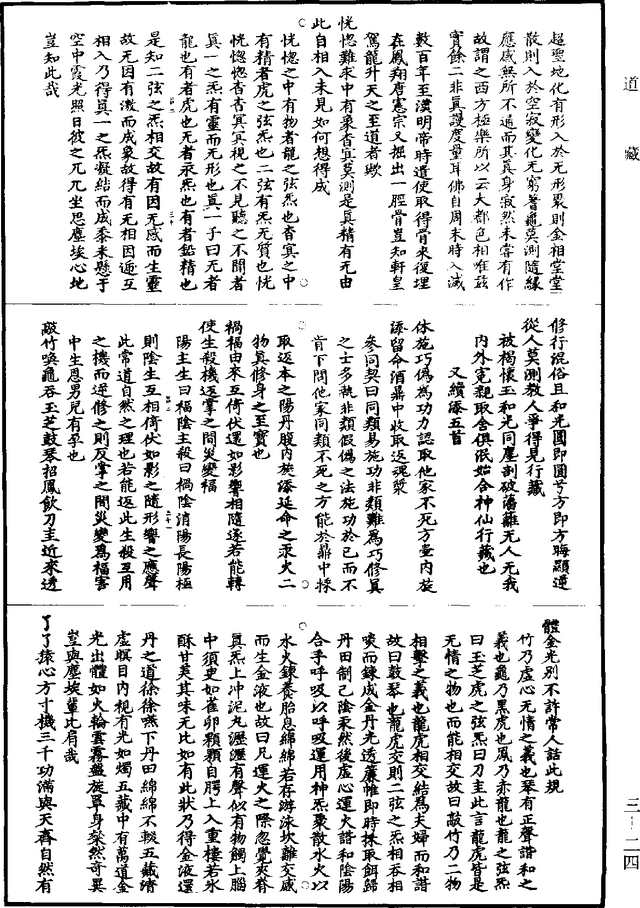 道藏
超聖地化有形入於无形聚則金相堂堂
散則入於空寂變化无窮蓍龜莫測隨緣
應感無所不通而其真身寂然未嘗有作
故謂之西方極樂所以云大都色相唯兹
實餘二非真謾度量耳佛自周末時入滅
數百年至漢明帝時遣使取得骨來復埋
在鳳翔唐憲宗又掘出一脛骨豈知軒皇
駕龍升天之至道者歟
恍惚難求中有象杳冥莫測是真精有无由
此自相入未見如何想得成
恍惚之中有物者龍之弦炁也杳冥之中
有精者虎之弦炁也二弦有炁无質也恍
恍惚惚杳杳冥冥視之不見聽之不聞者
真一之炁有靈而无形也真一子曰无者
龍也有者虎也无者汞炁也有者鉛精也
是知二弦之炁相交故有因无感而生靈
故无因有激而成象故得有无相因遞互
相入乃得真一之炁凝結而成黍米懸于
空中霞光照日彼之兀兀坐思塵埃心地
豈知此哉
修行混俗且和光圓即圓兮方即方晦顯逆
從人莫測教人爭得見行藏
被褐懷玉和光同塵剖破藩籬无人无我
內外寃親取舍俱泯始合神仙行藏也
又續添五首
体施巧偽為功力認取他家不死方壺內旋
添留命酒鼎中收取返魂漿
參同契曰同類易施功非類難為巧修真
之士多執非類假偽之法施功於己而不
肯下問他家同類不死之方能於鼎中採
取返本之陽丹腹內旋添延命之汞火二
物真修身之至寶也
禍福由來互倚伏還如影響相隨逐若能轉
使生殺機返掌之間災變福
陽主生曰福陰主殺曰禍陰消陽長陽極
則陰生互相倚伏如影之隨形響之應聲
此常道自然之理也若能返此生殺互用
之機而逆修之則反掌之間災變為福害
中生恩男兒有孕也
敲竹喚龜吞玉芝鼓琴招鳳飲刀圭近來透
體金光別不許常人話此規
竹乃虛心无情之義也琴有正聲諧和之
義也龜乃黑虎也鳳乃赤龍也龍之弦炁
曰玉芝虎之弦炁曰刀圭此言龍虎皆是
无情之物也而能相交故曰敲竹乃二物
相擊之義也龍虎相交結為夫婦而和諧
故曰鼓琴也龍虎交則二弦之炁相吞相
啖而鍊成金丹光透簾帷即時採取餌歸
丹田制己陰汞然後虛心運火諧和陰陽
合乎呼吸以呼吸運用神炁聚散水火以
水火鍊養胎息綿綿若存游泳坎離交感
而生金液也故曰凡運火之際忽覺夾脊
真炁上冲泥丸瀝瀝有聲似有物觸上腦
中須臾如雀卵顆顆自腭上入重樓若氷
酥甘美其味无比如有此狀乃得金液還
丹之道徐徐嚥下丹田綿綿不輟五藏清
虛瞑目內視有光如燭五藏中有萬道金
光出體如火輪雲霧盤旋罩身粲然奇異
豈與塵埃輩比肩哉
了了猿心方寸機三千功滿與天齊自然有
三—二四